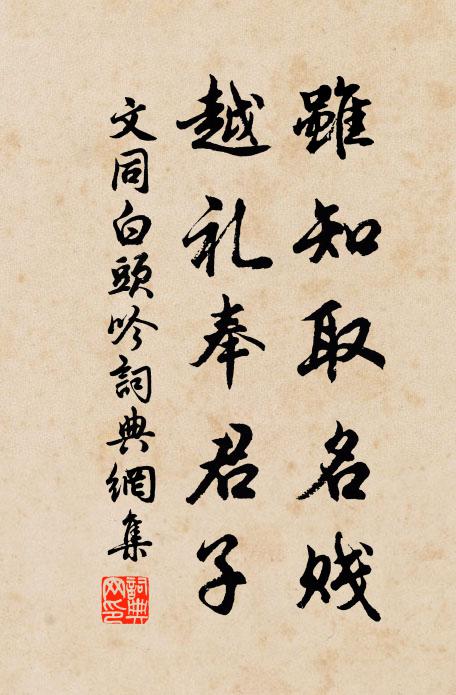 雖知取名賤
越礼奉君子
文同白頭吟詞典網集
詞典
网印